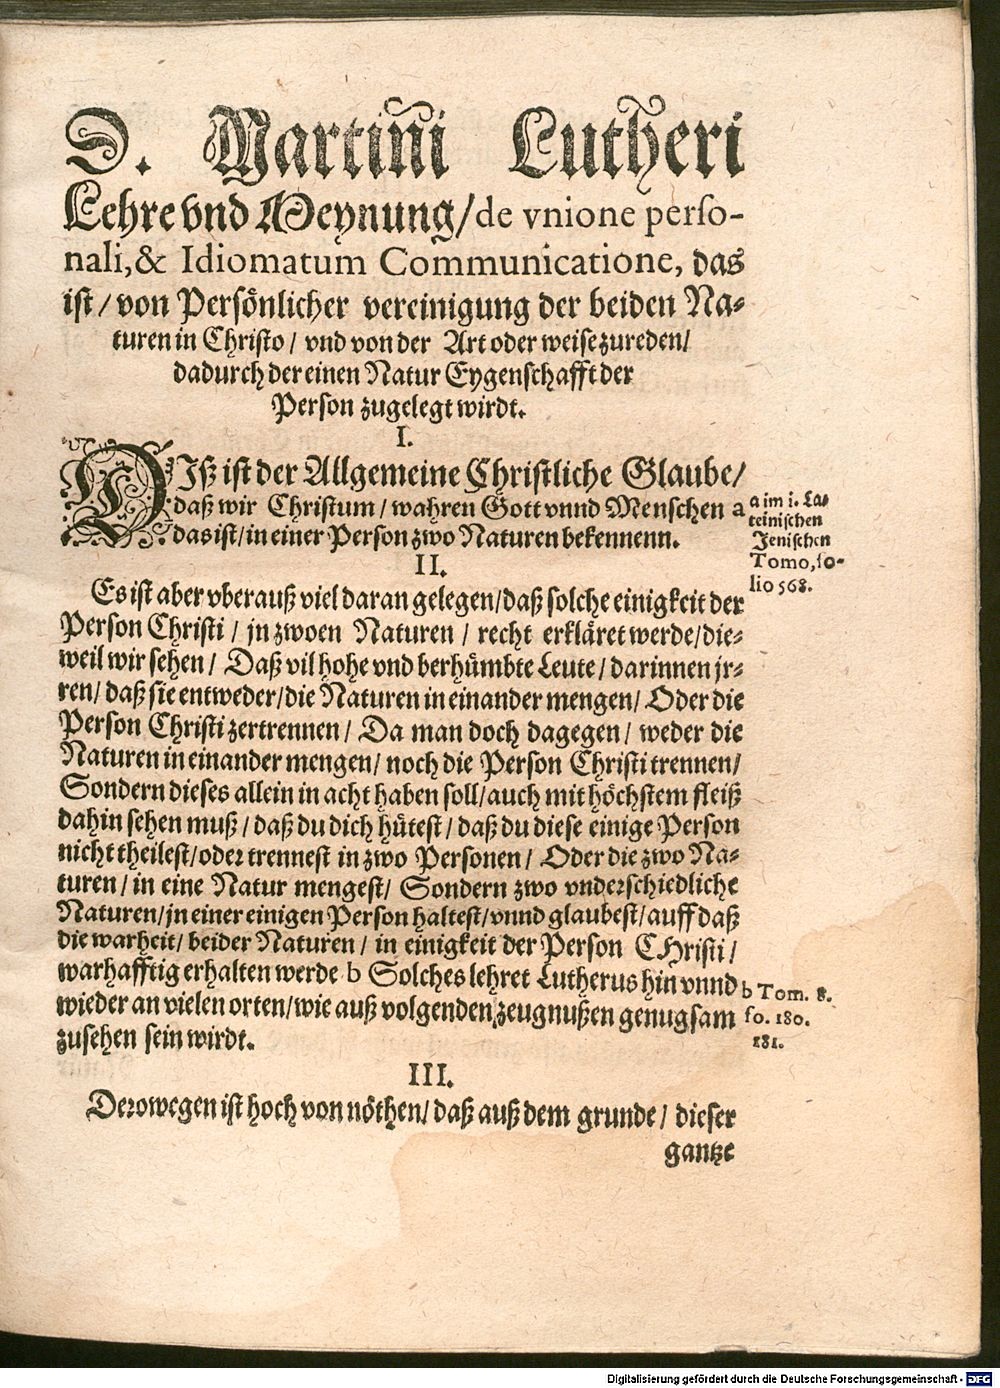 D. Martini Lutheri
Lehre vnd Meynung/ de vnione perso-
nali, & Idiomatum Communicatione, das
ist/ von Persönlicher vereinigung der beiden Na-
turen in Christo/ vnd von der Art oder weise zureden/
dadurch der einen Natur Eygenschafft der
Person zugelegt wirdt.
I.
DIß ist der Allgemeine Christliche Glaube/
daß wir Christum/ wahren Gott vnnd Menschen a
das ist/ in einer Person zwo Naturen bekennenn.
a im 1. La-
teinischen
Jenischen
Tomo, fo-
lio 568.
II.
Es ist aber vberauß viel daran gelegen/ daß solche einigkeit der
Person Christi/ jn zwoen Naturen/ recht erkläret werde/ die-
weil wir sehen/ Daß vil hohe vnd berhümbte Leute/ darinnen jr-
ren/ daß sie entweder/ die Naturen in einander mengen/ Oder die
Person Christi zertrennen/ Da man doch dagegen/ weder die
Naturen in einander mengen/ noch die Person Christi trennen/
Sondern dieses allein in acht haben soll/ auch mit höchstem fleiß
dahin sehen muß/ daß du dich hütest/ daß du diese einige Person
nicht theilest/ oder trennest in zwo Personen/ Oder die zwo Na-
turen/ in eine Natur mengest/ Sondern zwo vnderschiedliche
Naturen/ jn einer einigen Person haltest/ vnnd glaubest/ auff daß
die warheit/ beider Naturen/ in einigkeit der Person CHristi/
warhafftig erhalten werde b Solches lehret Lutherus hin vnnd
wieder an vielen orten/ wie auß volgenden zeugnußen genugsam
zusehen sein wirdt.
b Tom. 8.
fo. 180.
181.
III.
Derowegen ist hoch von nöthen/ daß auß dem grunde/ dieser
gantze
Digitalisierung gefördert durch die Deutsche Forschungsgemeinschaft - DFG